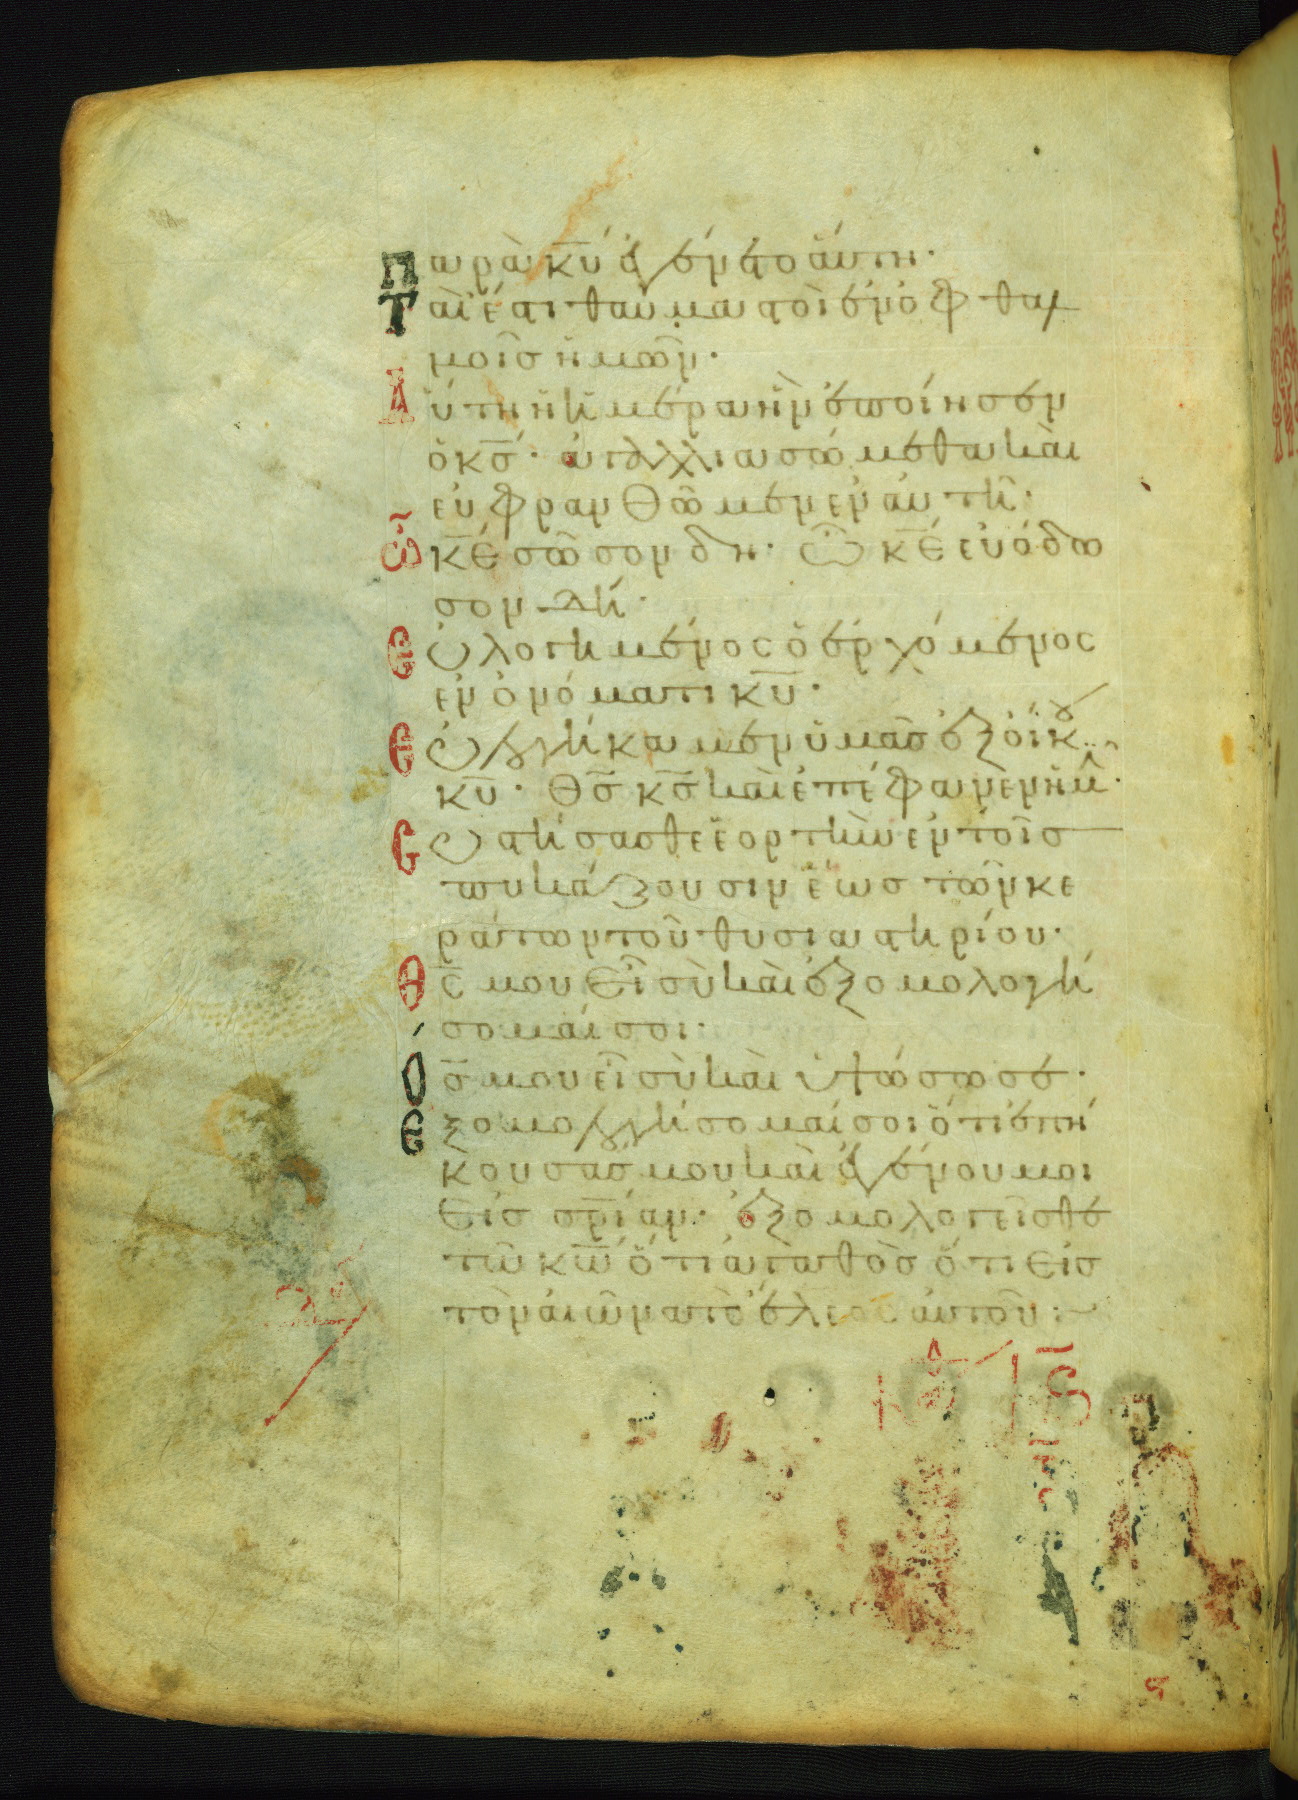 Παρὰ κ̅υ̅ ἐγένετο ἅυτη·
Καὶ ἔστι θαυμαστὴ ἐν ὀφθαλ
μοῖς ἡμῶν·
Ἁύτη ἡ ἡμέρα ἣν ἐποίησεν
ὁ κ̅ς̅· ἀγαλλιασώμεθα καὶ
ευφρανθῶμεν εν ἀυτῆ·
Ὦ κ̅ε̅ σῶσον δη· Ὦ κ̅ε̅ ευόδω
σον δή·
Ευλογημένος ὁ ερχόμενος
εν ὀνόματι κ̅υ̅·
Ευλογήκαμεν ὑμᾶς ἐξ ὀίκου
κ̅υ̅· θ̅ς̅ κ̅ς̅ καὶ ἐπέφανεν ἡμῖν·
Συστήσασθε ἑορτὴν εν τοῖς
πυκάζουσιν ἕως τῶν κε
ράτων τοῦ θυσιαστηρίου·
Θ̅ς̅ μου εἶ σὺ καὶ ἐξομολογή
σομαί σοι·
Θ̅ς̅ μου εἶ σὺ καὶ ὑψώσω σε·
Εξομολογήσομαί σοι ὅτι ἐπή
κουσάς μου καὶ ἐγένου μοι
εἰς σ̅ρ̅ίαν· ἐξομολογεῖσθε
τῶ κ̅ω̅ ὅτι ἀγαθὸς ὅτι εἰς
τὸν ἀιῶνα τὸ ἔλεος ἀυτοῦ:~